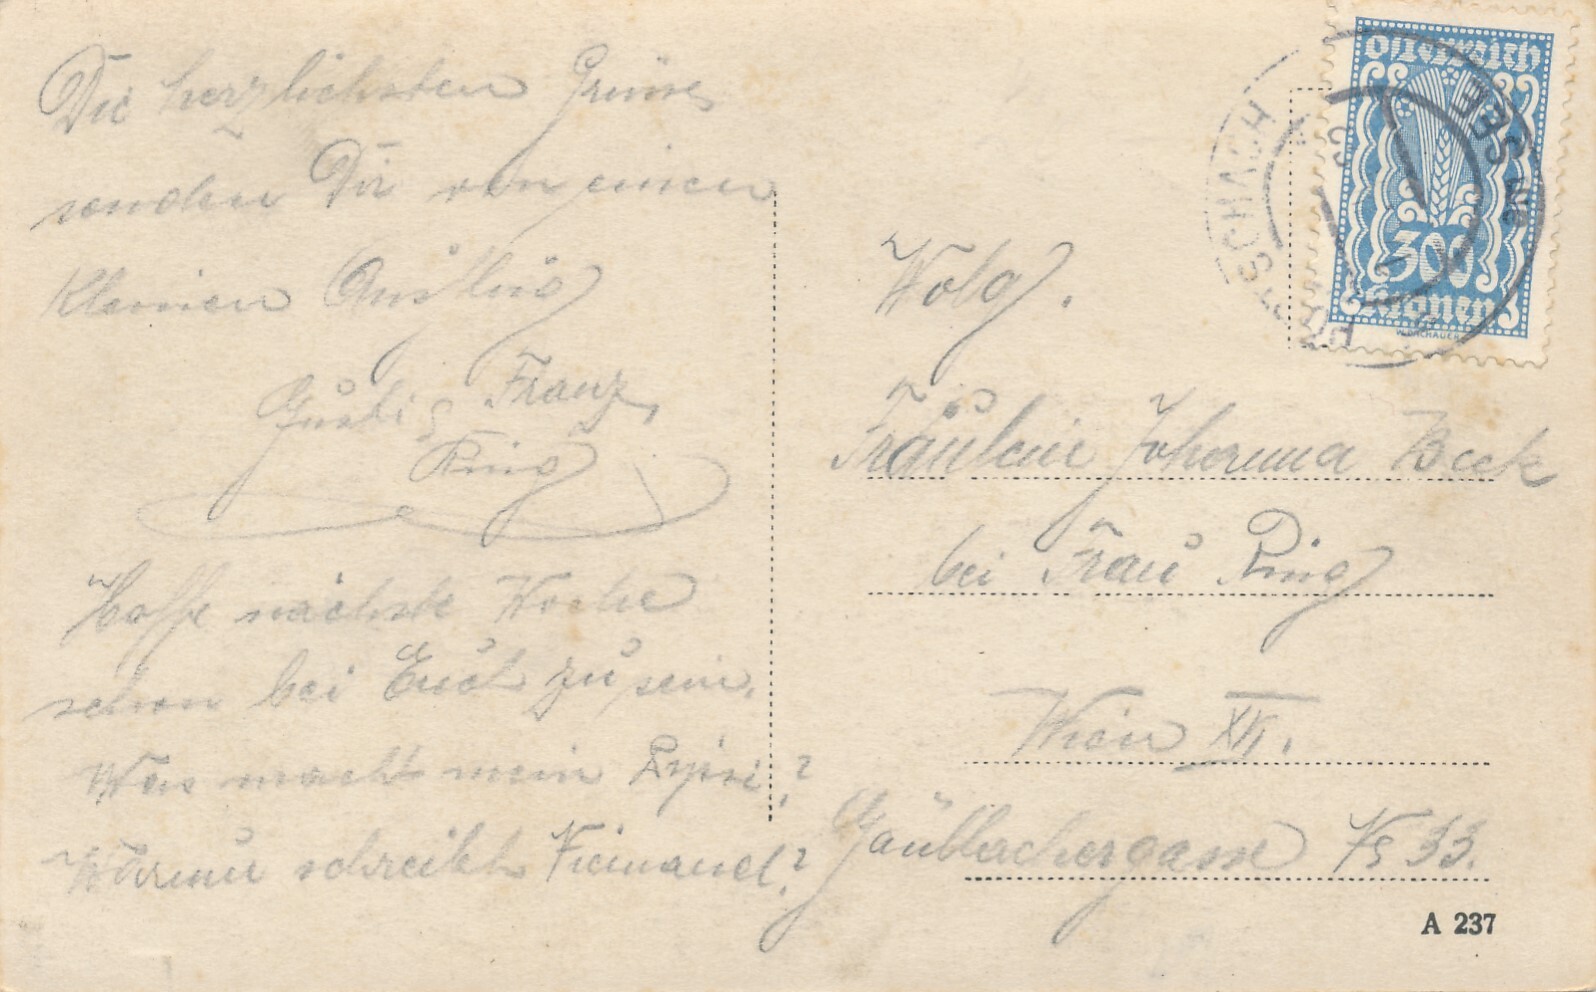 Die herzlichsten Grüsse
senden Dir von einen
kleinen Ausflug
Gusti & Franz
Ring
Hoffe nächste Woche
schon bei Euch zu sein.
Was macht mein
Warum schreibt Niemand?
Österreich
300
Kronen
PÖRTSCHACH AM SEE
Wolg.
Fräulein Johanna Beck
bei Frau Ring
Wien XVI.
Gaullachergasse No 33.
A 237